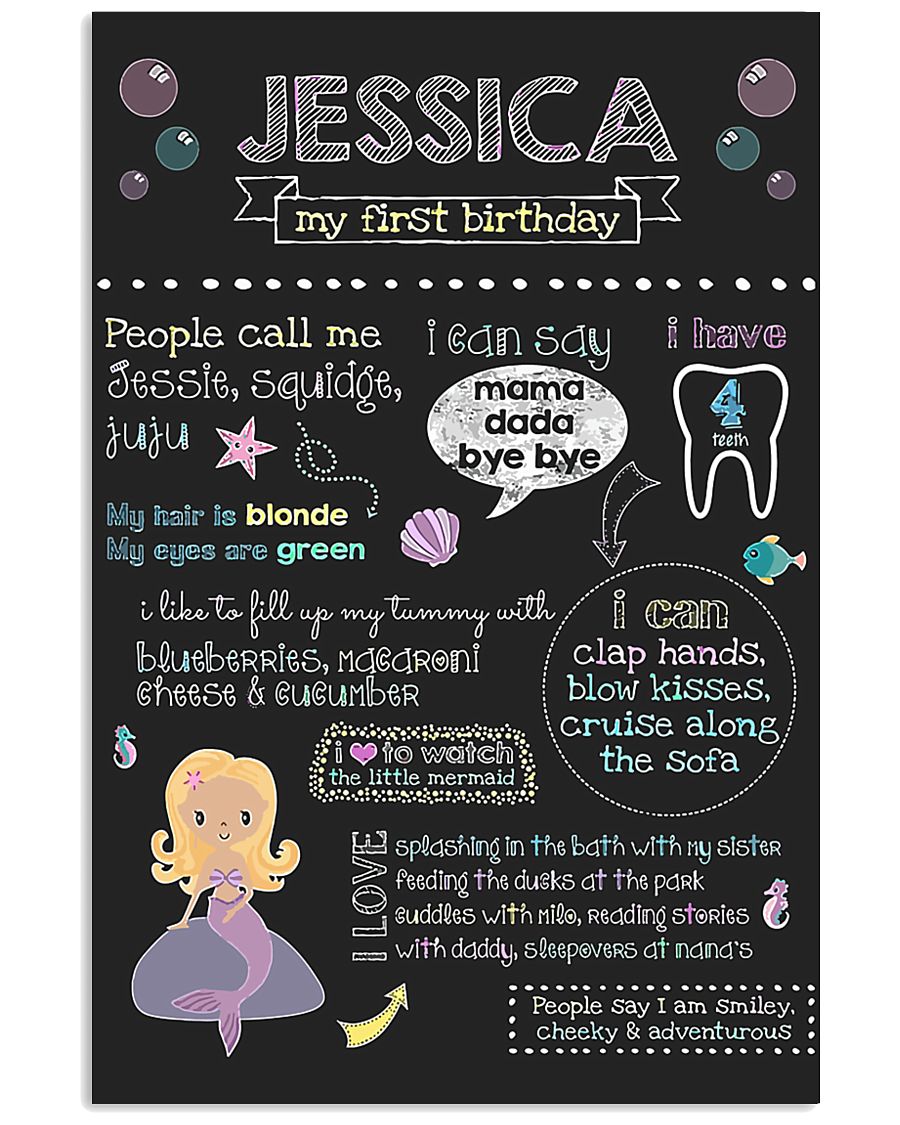 JESSICA
my first birthday
People call me
Jessie, squidge,
juju
i can say
mama
dada
bye bye
i have
4
teeth
My hair is blonde
My eyes are green
i like to fill up my tummy with
blueberries, macaroni
cheese & cucumber
i can
clap hands,
blow kisses,
cruise along
the sofa
i ♥ to watch
the little mermaid
I LOVE
splashing in the bath with my sister
feeding the ducks at the park
cuddles with milo, reading stories
with daddy, sleepovers at nana's
People say I am smiley,
cheeky & adventurous